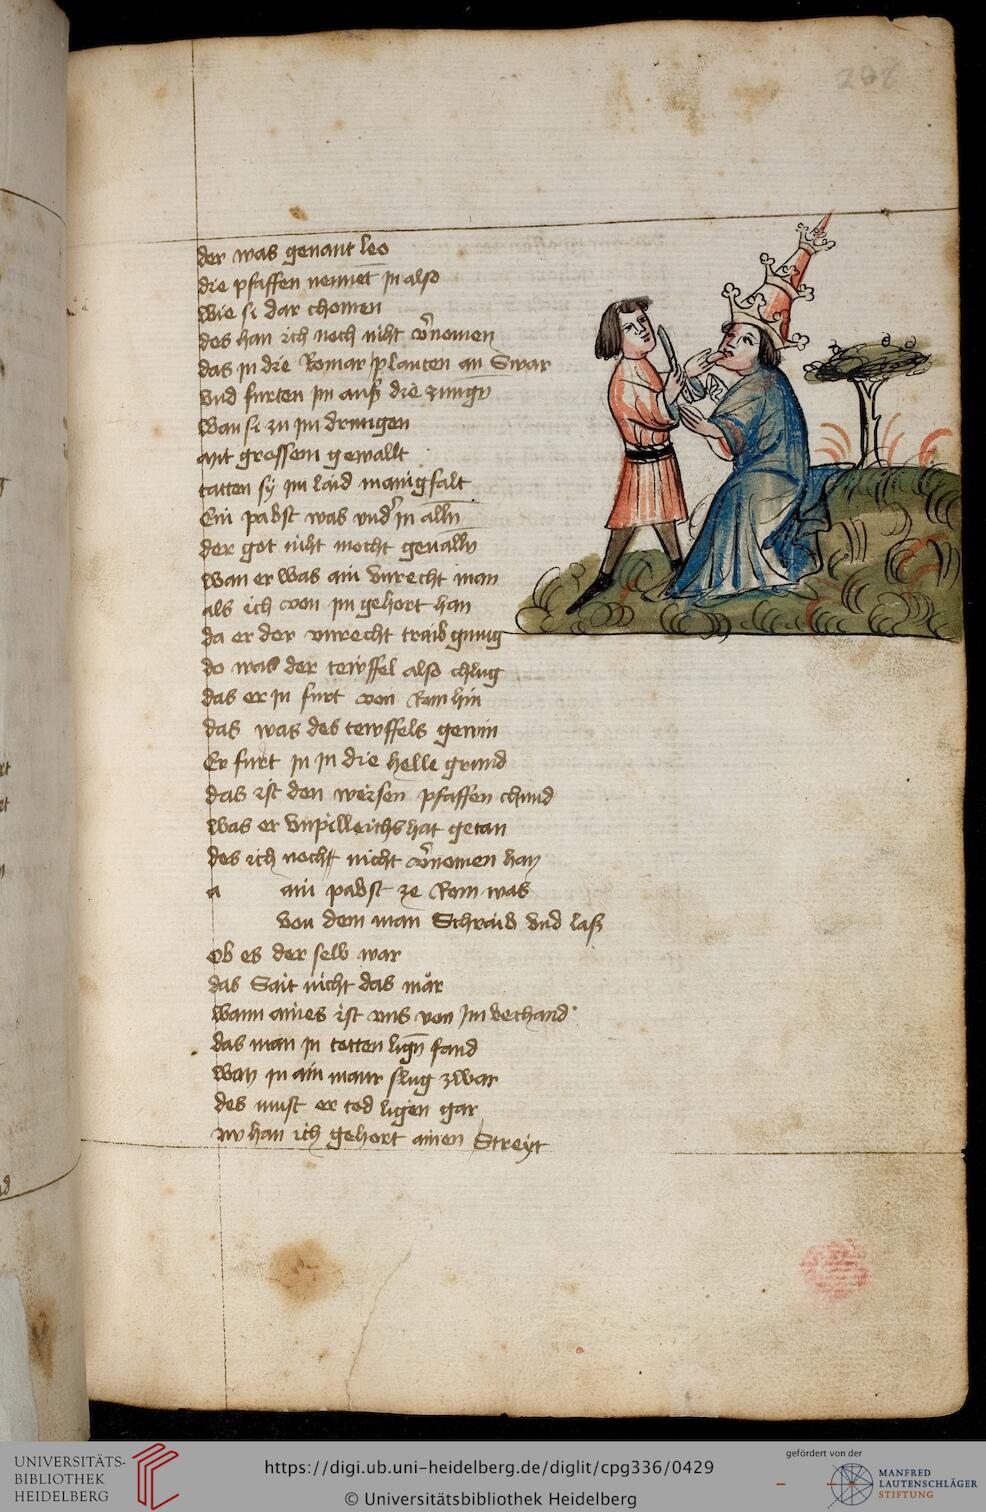 208
der was genant leo
die pfaffen nennet in also
wie si dar chomen
des han ich noch niht v̄nomen
das in die Romar planten an Swar
vnd furten im auß die zungn
wan si zu im drungen
mit grossem gewallt
tatten sy im laid manigfalt
Ein pabst was vnder in alln
der got niht mocht geualln
wan er was ain vnrecht man
als ich von im gehort han
da er der vnrecht traib gnug
do was der tewffel also chlug
das er in furt von Rom hin
das was des tewffels gewin
Er furt in in die helle grund
das ist den weisen pfaffen chund
was er vnpilleichs hat getan
des ich noch nicht v̄nomen han
a ain pabst ze Rom was
von dem man Schraib vnd laß
ob es der selb war
das Sait nicht das mär
wann aines ist vns von im bechand
das man in totten lign fand
wan in ain maur slug zwar
des must er tod ligen gar
nv han ich gehort ainen Streyt
UNIVERSITÄTS-
BIBLIOTHEK
HEIDELBERG
https://digi.ub.uni-heidelberg.de/diglit/cpg336/0429
© Universitätsbibliothek Heidelberg
gefördert von der
MANFRED
LAUTENSCHLÄGER
STIFTUNG